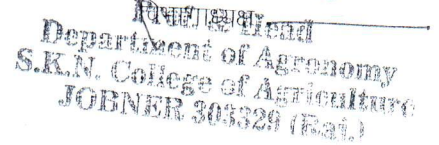 & Head
Department of Agronomy
S.K.N. College of Agriculture
JOBNER 303329 (Raj.)